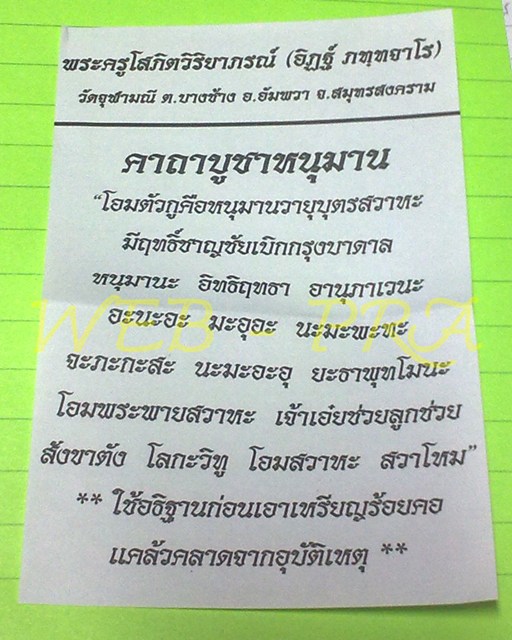 พระครูโสภิตวิริยาภรณ์ (อิฏฐ์ ภทฺทจาโร)
วัดจุฬามณี ต.บางช้าง อ.อัมพวา จ.สมุทรสงคราม
คาถาบูชาหนุมาน
“โอมตัวกูคือหนุมานวายุบุตรสวาหะ
มีฤทธิ์ชาญชัยเบิกกรุงบาดาล
หนุมานะ อิทธิฤทธา อานุภาเวนะ
อะนะอะ มะอุอะ นะมะพะทะ
จะภะกะสะ นะมะอะอุ ยะธาพุทโมนะ
โอมพระพายสวาหะ เจ้าเอ๋ยช่วยลูกช่วย
สังขาตัง โลกะวิทู โอมสวาหะ สวาโหม”
** ใช้อธิฐานก่อนเอาเหรียญร้อยคอ
แคล้วคลาดจากอุบัติเหตุ **
WEB - PRA